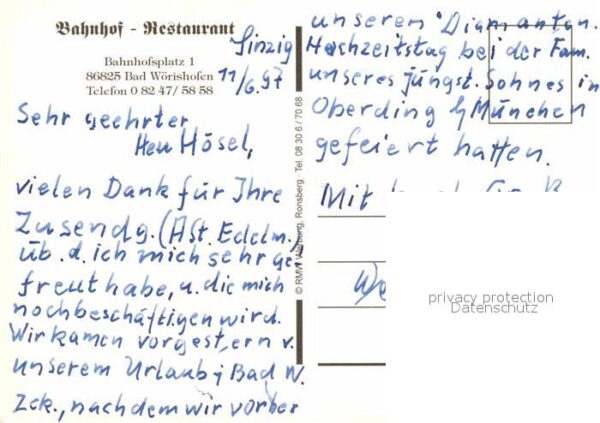 Bahnhof - Restaurant
Bahnhofsplatz 1
86825 Bad Wörishofen
Telefon 0 82 47/ 58 58
Sinzig
11/6.97
Sehr geehrter
Herr Hösel,
vielen Dank für Ihre
Zusendg. (Ast. Edelm.)
üb. d. ich mich sehr ge
freut habe, u. die mich
noch beschäftigen wird.
Wir kamen vorgestern v.
unserem Urlaub i Bad W.
zck., nachdem wir vorher
© RMV Werbung, Ronsberg · Tel. 08 30 6 / 70 68
unseren Diamanten.
Hochzeitstag bei der Fam.
unseres jüngst. Sohnes in
Oberding b/ München
gefeiert hatten.
Mit
privacy protection
Datenschutz